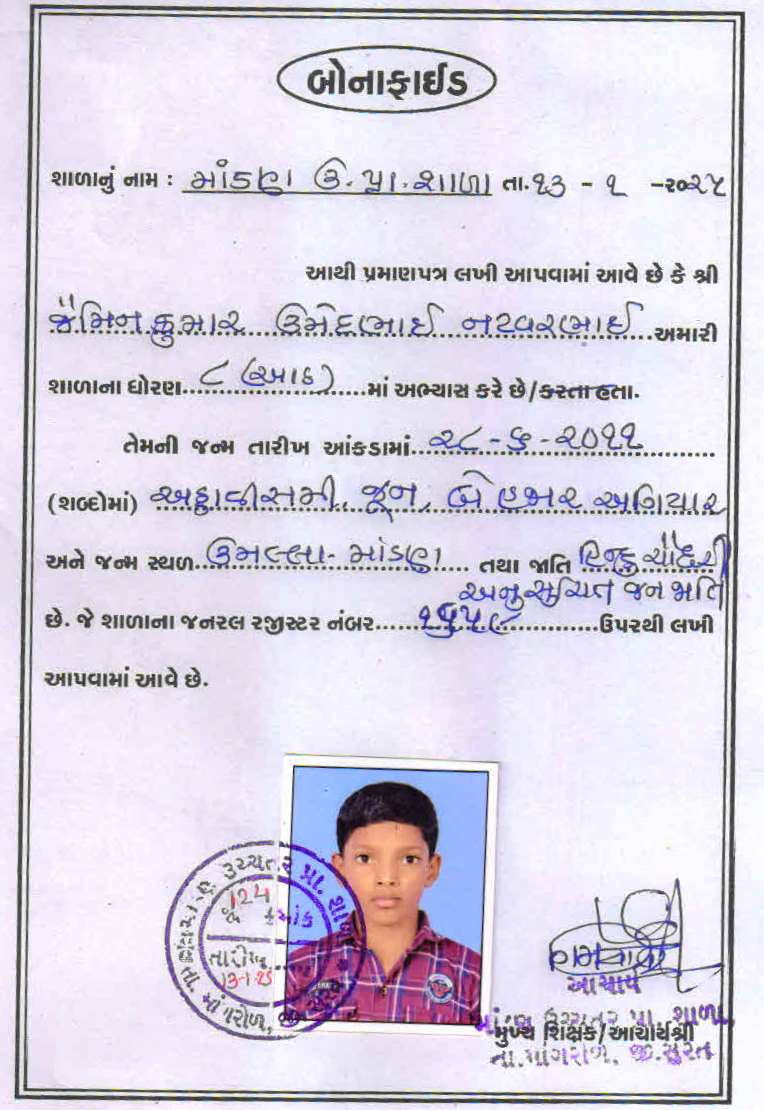 બોનાફાઈડ
શાળાનું નામ : માંડણ ઉ.પ્રા.શાળા તા.૧૩ - ૧ -૨૦૨૫
આથી પ્રમાણપત્ર લખી આપવામાં આવે છે કે શ્રી
જૈમિનકુમાર ઉમેદભાઈ નટવરભાઈ અમારી
શાળાના ધોરણ ૮ (આઠ) માં અભ્યાસ કરે છે/કરતા હતા.
તેમની જન્મ તારીખ આંકડામાં ૨૮-૬-૨૦૧૧
(શબ્દોમાં) અઠ્ઠાવીસમી, જૂન, બે હજાર અગિયાર
અને જન્મ સ્થળ ઉમલ્લા- માંડણ તથા જાતિ હિન્દુ ચૌધરી
અનુસુચિત જનજાતિ
છે. જે શાળાના જનરલ રજીસ્ટર નંબર ૧૫૫૯ ઉપરથી લખી
આપવામાં આવે છે.
ઉચ્ચતર પ્રા. શાળા
124
જા ક્રમાંક
તારીખ
13-1-25
તા. માંગરોળ,
આચાર્ય
માંડણ ઉચ્ચતર પ્રા. શાળા,
મુખ્ય શિક્ષક/આચાર્યશ્રી
તા.માંગરોળ, જી.સુરત